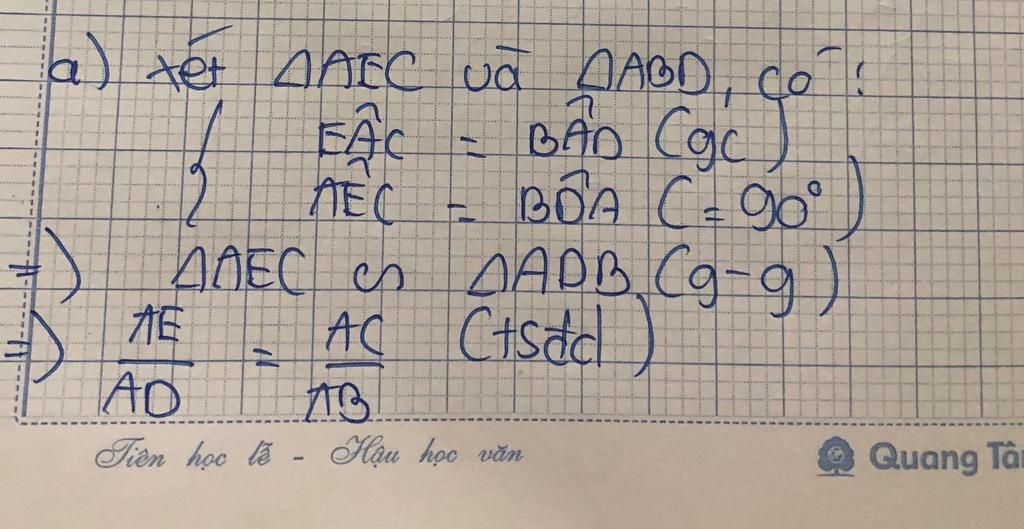 a) xét ΔAEC và ΔABD, có:
{ EÂC = BÂD (gc)
AÊC = BD̂A (= 90°)
=) ΔAEC ∽ ΔADB (g-g)
=) AE/AD = AC/AB (tsđd)
Tiên học lễ - Hậu học văn
Quang Tâ